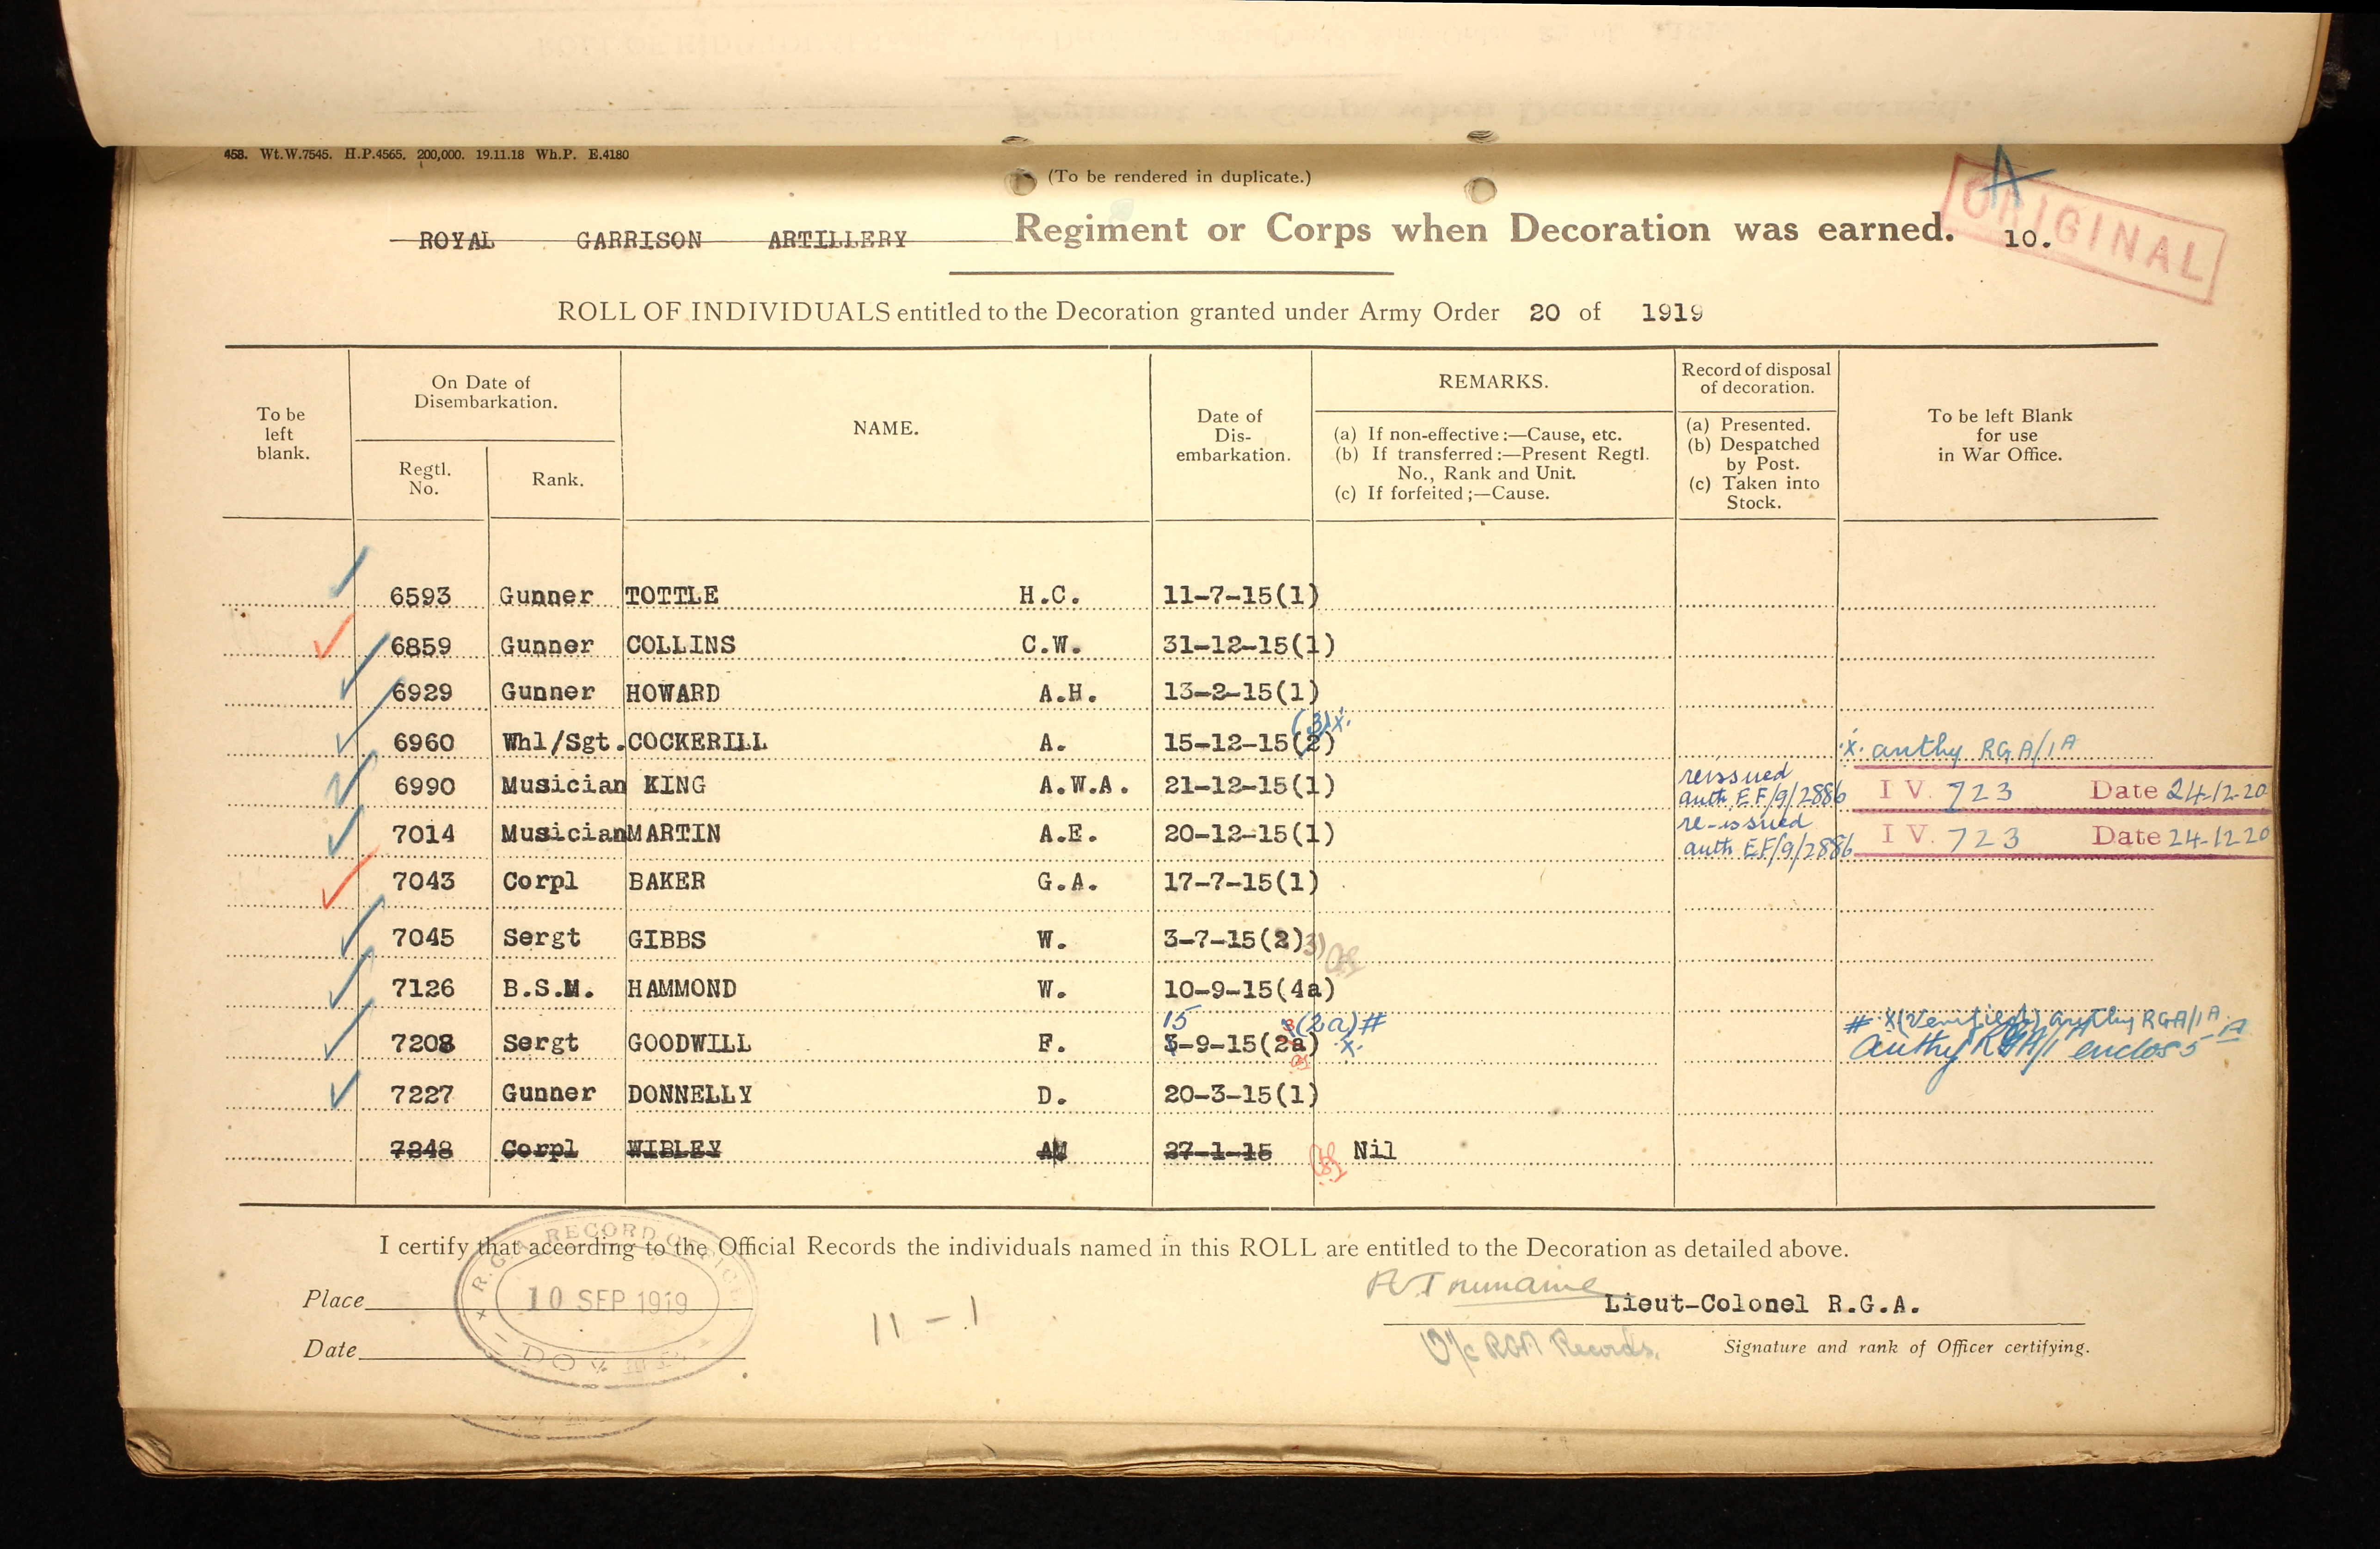 458. Wt.W.7545. H.P.4565. 200,000. 19.11.18 Wh.P. E.4180
(To be rendered in duplicate.)
A
ORIGINAL
ROYAL GARRISON ARTILLERY Regiment or Corps when Decoration was earned. 10.
ROLL OF INDIVIDUALS entitled to the Decoration granted under Army Order 20 of 1919
To be left blank.
On Date of Disembarkation.
Regtl. No.
Rank.
NAME.
Date of Dis-embarkation.
REMARKS.
(a) If non-effective:—Cause, etc.
(b) If transferred:—Present Regtl. No., Rank and Unit.
(c) If forfeited;—Cause.
Record of disposal of decoration.
(a) Presented.
(b) Despatched by Post.
(c) Taken into Stock.
To be left Blank for use in War Office.
6593 Gunner TOTTLE H.C. 11-7-15(1)
6859 Gunner COLLINS C.W. 31-12-15(1)
6929 Gunner HOWARD A.H. 13-2-15(1)
(3)x.
6960 Whl/Sgt. COCKERILL A. 15-12-15(2) x. authy RGA/1A
6990 Musician KING A.W.A. 21-12-15(1) reissued auth EF/9/2886 IV. 723 Date 24-12-20
7014 Musician MARTIN A.E. 20-12-15(1) re-issued auth EF/9/2886 IV. 723 Date 24-12-20
7043 Corpl BAKER G.A. 17-7-15(1)
7045 Sergt GIBBS W. 3-7-15(2)3)
7126 B.S.M. HAMMOND W. 10-9-15(4a)
15 (2a)# # x(Verified) authy RGA/1A
7208 Sergt GOODWILL F. 3-9-15(2a) x. Authy RGA/1A enclos 5
7227 Gunner DONNELLY D. 20-3-15(1)
7248 Corpl WIBLEY AW 27-1-15 Nil
I certify that according to the Official Records the individuals named in this ROLL are entitled to the Decoration as detailed above.
R.G.A. RECORD OFFICE
10 SEP 1919
DOVER
Place
Date
11-1
Lieut-Colonel R.G.A.
O/c RGA Records.
Signature and rank of Officer certifying.